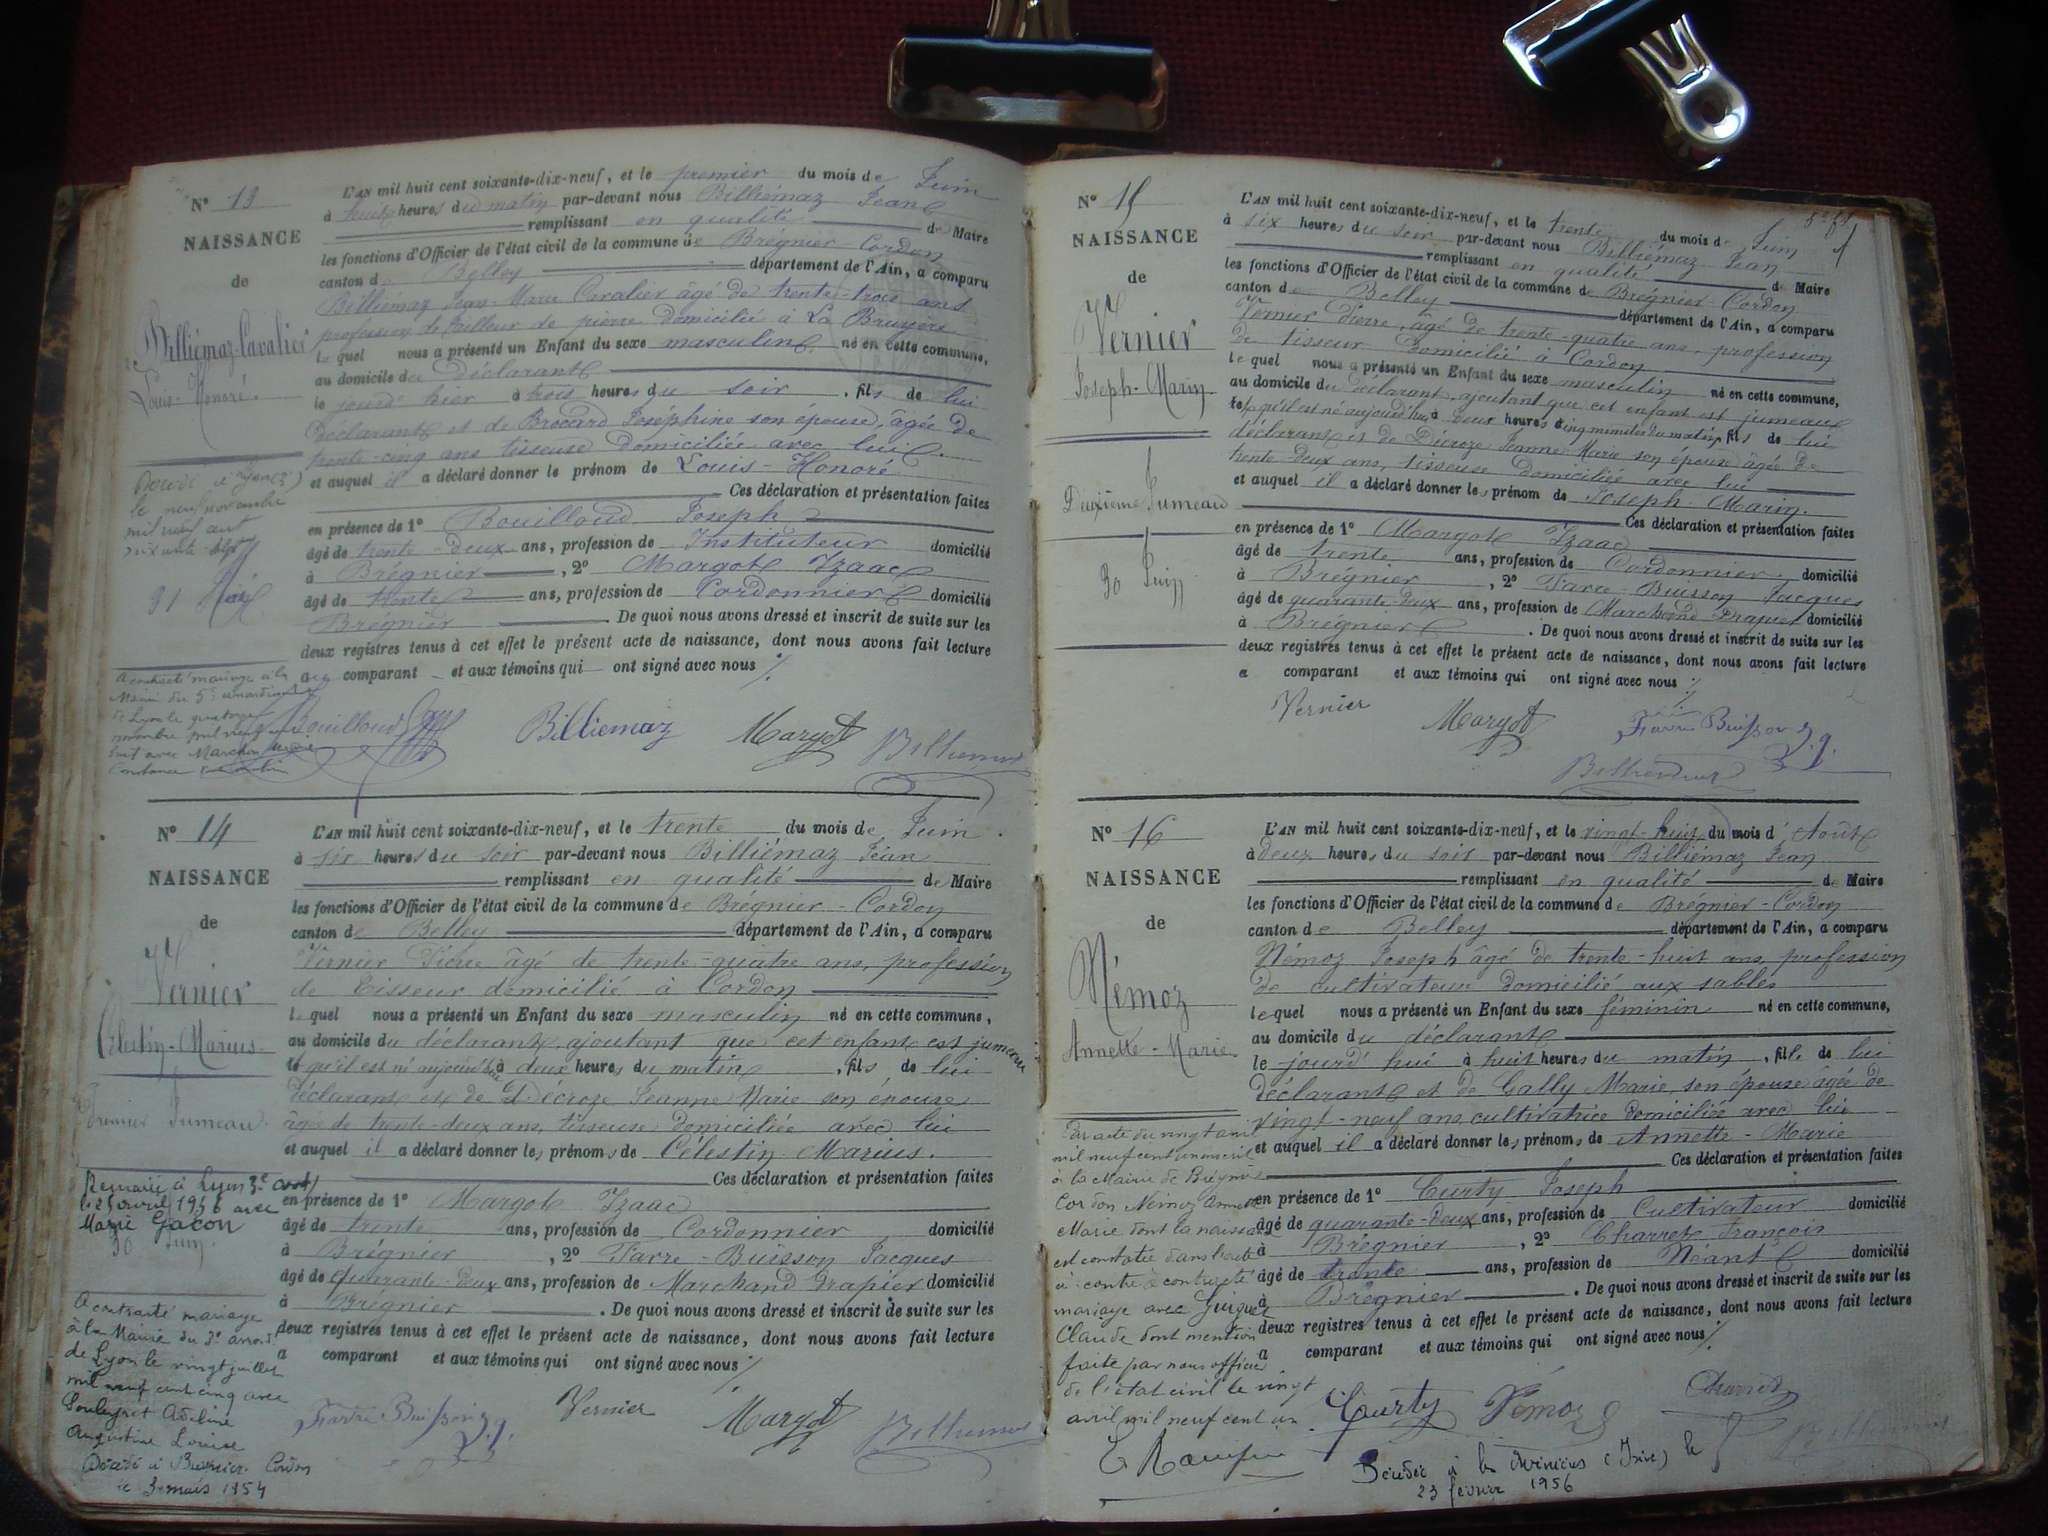 N° 13
NAISSANCE
de
Billiémaz-Cavalier
Louis-Honoré.
le neuf novembre
mil neuf cent
soixante-sept
31 Mai
A contracté mariage à la
Mairie du 5e arrondissement
de Lyon le quatorze
novembre mil neuf cent
huit avec
Constance
L'AN mil huit cent soixante-dix-neuf, et le premier du mois de Juin
à huit heures du matin par-devant nous Billiémaz Jean
remplissant en qualité de Maire
les fonctions d'Officier de l'état civil de la commune de Brégnier-Cordon
canton de Belley département de l'Ain, a comparu
Billiémaz Jean-Marie Cavalier âgé de trente-trois ans
profession de tailleur de pierre domicilié à La Bruyère
le quel nous a présenté un Enfant du sexe masculin né en cette commune,
au domicile du déclarant
le jourd'hier à trois heures du soir, fils de lui
déclarant et de Brocard Joséphine son épouse, âgée de
trente-cinq ans tisseuse domiciliée avec lui.
et auquel il a déclaré donner le prénom de Louis-Honoré
Ces déclaration et présentation faites
en présence de 1° Bouilloud Joseph
âgé de trente-deux ans, profession de Instituteur domicilié
à Brégnier, 2° Margot Izaac
âgé de trente ans, profession de Cordonnier domicilié
Brégnier. De quoi nous avons dressé et inscrit de suite sur les
deux registres tenus à cet effet le présent acte de naissance, dont nous avons fait lecture
au comparant et aux témoins qui ont signé avec nous
Bouilloud Billiemaz Margot Billiemaz
N° 14
NAISSANCE
de
Vernier
Célestin-Marius.
Premier Jumeau.
Remarié à Lyon 3e arrdt
le 25 avril 1936 avec
Marie Gacon
30 Juin.
A contracté mariage
à la Mairie du 3e arrondt
de Lyon le vingt juillet
mil neuf cent cinq avec
Souleyret Adeline
Augustine Louise
Décédé à Brégnier-Cordon
le 3 mars 1954
L'AN mil huit cent soixante-dix-neuf, et le trente du mois de Juin
à six heures du soir par-devant nous Billiémaz Jean
remplissant en qualité de Maire
les fonctions d'Officier de l'état civil de la commune de Brégnier-Cordon
canton de Belley département de l'Ain, a comparu
Vernier Pierre âgé de trente-quatre ans, profession
de Tisseur domicilié à Cordon
le quel nous a présenté un Enfant du sexe masculin né en cette commune,
au domicile du déclarant, ajoutant que cet enfant est jumeau
et qu'il est né aujourd'hui à deux heures du matin, fils de lui
déclarant et de Décroze Jeanne Marie son épouse
âgée de trente-deux ans, tisseuse domiciliée avec lui
et auquel il a déclaré donner les prénoms de Célestin-Marius.
Ces déclaration et présentation faites
en présence de 1° Margot Izaac
âgé de trente ans, profession de Cordonnier domicilié
à Brégnier, 2° Favre-Buisson Jacques
âgé de quarante-deux ans, profession de Marchand drapier domicilié
à Brégnier. De quoi nous avons dressé et inscrit de suite sur les
deux registres tenus à cet effet le présent acte de naissance, dont nous avons fait lecture
a comparant et aux témoins qui ont signé avec nous
Favre Buisson Vernier Margot Billiemaz
N° 15
NAISSANCE
de
Vernier
Joseph-Marin.
Deuxième Jumeau
30 Juin
L'AN mil huit cent soixante-dix-neuf, et le trente du mois de Juin
à six heures du soir par-devant nous Billiémaz Jean
remplissant en qualité de Maire
les fonctions d'Officier de l'état civil de la commune de Brégnier-Cordon
canton de Belley département de l'Ain, a comparu
Vernier Pierre, âgé de trente-quatre ans, profession
de tisseur domicilié à Cordon
le quel nous a présenté un Enfant du sexe masculin né en cette commune,
au domicile du déclarant, ajoutant que cet enfant est jumeau
et qu'il est né aujourd'hui à deux heures cinq minutes du matin, fils de lui
déclarant et de Décroze Jeanne Marie son épouse âgée de
trente-deux ans, tisseuse domiciliée avec lui
et auquel il a déclaré donner les prénom de Joseph-Marin.
Ces déclaration et présentation faites
en présence de 1° Margot Izaac
âgé de trente ans, profession de Cordonnier domicilié
à Brégnier, 2° Favre Buisson Jacques
âgé de quarante-deux ans, profession de Marchand Drapier domicilié
à Brégnier. De quoi nous avons dressé et inscrit de suite sur les
deux registres tenus à cet effet le présent acte de naissance, dont nous avons fait lecture
a comparant et aux témoins qui ont signé avec nous
Vernier Margot Favre Buisson
Billiemaz
N° 16
NAISSANCE
de
Némoz
Annette-Marie
Par acte du vingt avril
mil neuf cent un inscrit
à la Mairie de Brégnier
Cordon Némoz Annette
Marie dont la naissance
est constatée dans l'acte
ci-contre a contracté
mariage avec Guiguet
Claude dont mention
faite par nous officier
de l'état civil le vingt
avril mil neuf cent un
L'AN mil huit cent soixante-dix-neuf, et le vingt-huit du mois d'Août
à deux heures du soir par-devant nous Billiémaz Jean
remplissant en qualité de Maire
les fonctions d'Officier de l'état civil de la commune de Brégnier-Cordon
canton de Belley département de l'Ain, a comparu
Némoz Joseph âgé de trente-huit ans, profession
de cultivateur domicilié aux sables
lequel nous a présenté un Enfant du sexe féminin né en cette commune,
au domicile du déclarant
le jourd'hui à huit heures du matin, fille de lui
déclarant et de Gally Marie, son épouse âgée de
vingt-neuf ans, cultivatrice domiciliée avec lui
et auquel il a déclaré donner les prénoms de Annette-Marie
Ces déclaration et présentation faites
en présence de 1° Curty Joseph
âgé de quarante-deux ans, profession de Cultivateur domicilié
à Brégnier, 2° Charret François
âgé de trente ans, profession de Néant domicilié
à Brégnier. De quoi nous avons dressé et inscrit de suite sur les
deux registres tenus à cet effet le présent acte de naissance, dont nous avons fait lecture
a comparant et aux témoins qui ont signé avec nous
Curty Némoz Charret
Billiemaz
Décédée à les Avenières (Isère) le
23 février 1956